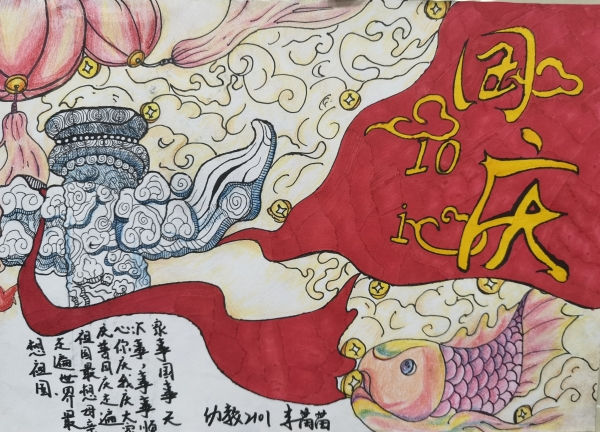 国庆
10
家事国事天
下事，事事顺
心你庆我庆大家
庆普同庆走遍
祖国最想母亲
走遍世界最
想祖国
幼教2101 李